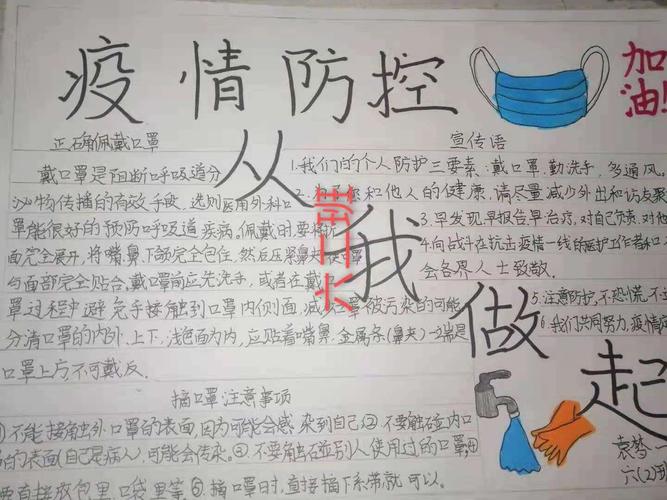 疫情防控
加油!
从我做起
正确佩戴口罩
戴口罩是阻断呼吸道分
泌物传播的有效手段,选则医用外科口
罩能很好的预防呼吸道疾病。佩戴时要将折
面完全展开,将嘴鼻、下颌完全包住,然后压紧鼻夹
与面部完全贴合,戴口罩前应先洗手,或者在戴口
罩过程中避免手接触到口罩内侧面,减 口罩被污染的可能
分清口罩的内外、上下,浅色面为内,应贴着嘴鼻,金属条(鼻夹)一端是
口罩上方,不可戴反.
摘口罩注意事项
①不能接触外口罩的表面,因为可能会感染到自己②不要触碰内口
的表面(自己是病人),可能会传染。③不要触碰别人使用过的口罩,④
要直接放包里、口袋里等⑤摘口罩时,直接摘下系带就可以.
宣传语
1.我们的个人防护三要素:戴口罩.勤洗手、多通风。
2. 和他人的健康,请尽量减少外出和访友聚
3.早发现,早报告,早治疗,对自己负责,对他
4.向战斗在抗击疫情一线的医护工作者和
会各界人士致敬.
5.注意防护,不恐慌,不
6.我们共同努力,疫情
袁梦一
六(2)班